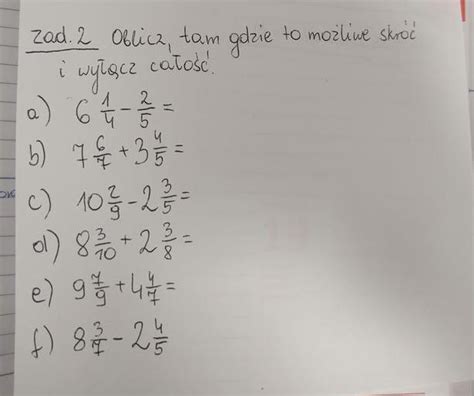 Zad. 2 Oblicz, tam gdzie to możliwe skróć
i wyłącz całość.
a) 6 1/4 - 2/5 =
b) 7 6/7 + 3 4/5 =
c) 10 2/9 - 2 3/5 =
d) 8 3/10 + 2 3/8 =
e) 9 7/9 + 4 4/7 =
f) 8 3/7 - 2 4/5